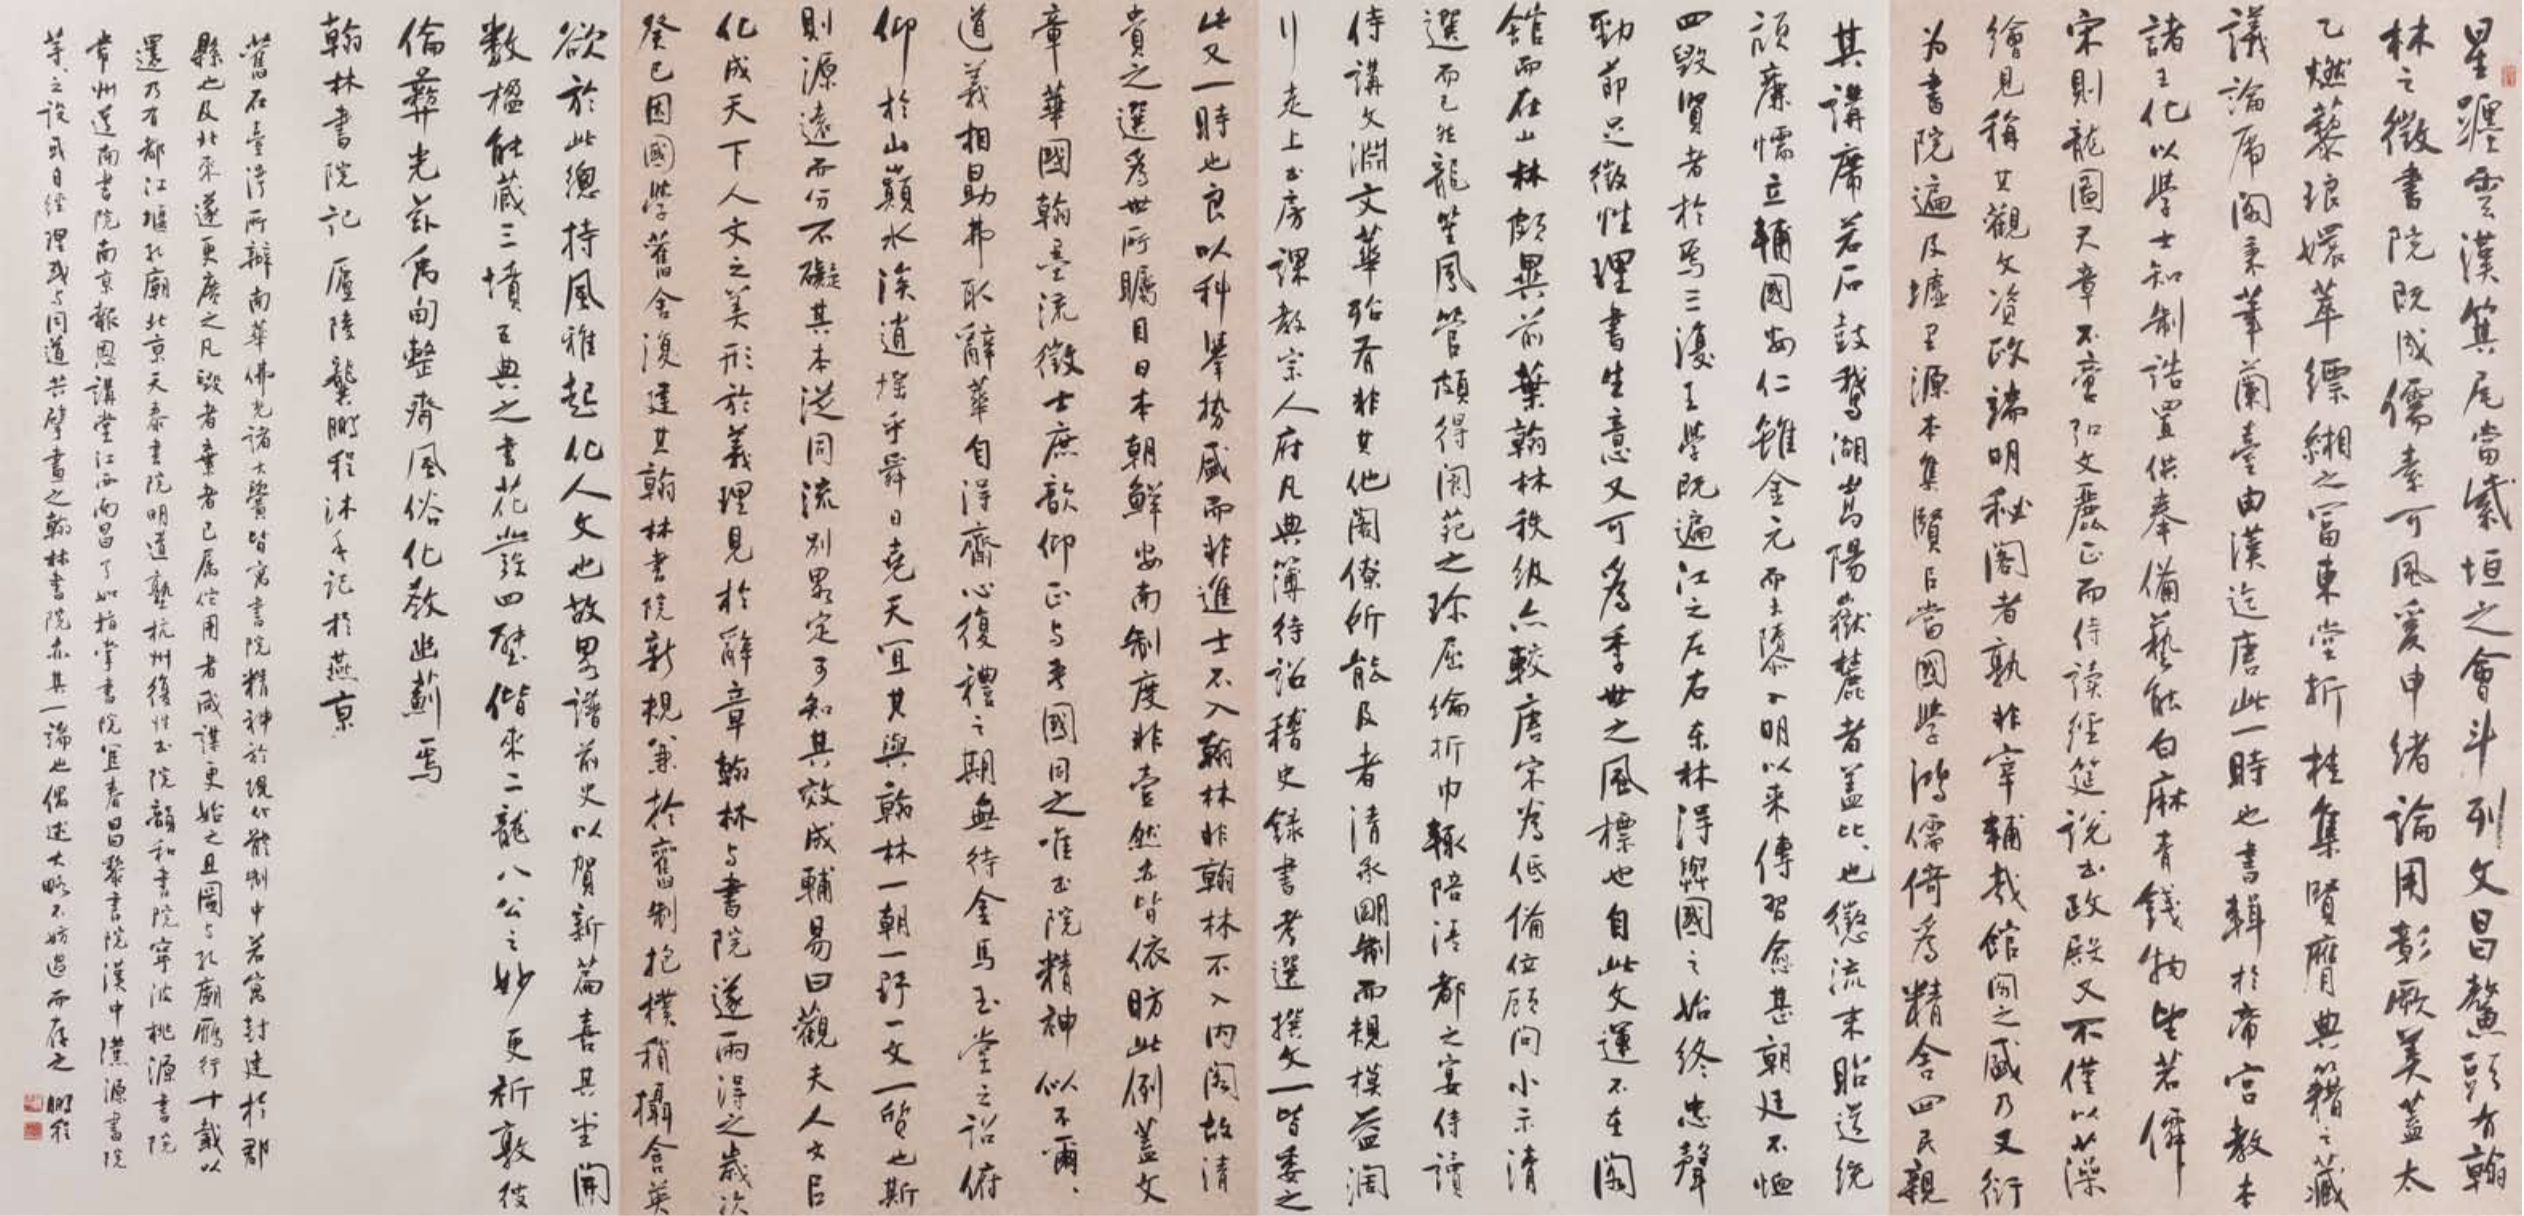 星躔雲漢箕尾當紫垣之會斗列文昌鰲頭有翰
林之徵書院既成儒素可風爰申緒論用彰厥美蓋太
乙燃藜琅嬛萃縹緗之富東堂折桂集賢膺典籍之藏
議論席閣秉筆蘭臺由漢迄唐此一時也書輯於帝宮教本
諸王化以學士知制誥置供奉備藝能白麻青錢物望若儕
宋則龍圖天章不啻弘文麗正而侍读經筵说书政殿又不僅以藻
繪見稱其觀文資政端明秘閣者孰非宰輔哉館閣之盛乃又衍
为書院遍及墟里源本集賢臣當國學鴻儒倚為精舍四民親
其講席若石鼓鵝湖嵩陽嶽麓者蓋比比也懲流末貽送统
頑廉懦立輔國安仁雖金元而未隳入明以来傳習愈甚朝廷不恤
四毀賢者於焉三復王學既遍江之左右东林得與國之始终忠聲
勁節足徵性理書生意又可為季世之風標也自此文運不在閣
館而在山林頗異前葉翰林秩级亦較唐宋為低備位顧问小示清
選而已然龍笙鳳管頗得闲范之珍屈綸折巾輒陪清都之宴侍讀
侍講文淵文華殆有非其他閣僚所能及者清承明制而規模益阔
行走上书房課教宗人府凡典簿待詔稽史錄書考選撰文一皆委之
此又一時也良以科舉势盛而非進士不入翰林非翰林不入内阁故清
貴之選為世所矚目日本朝鮮安南制度非壹然亦皆依昉此例蓋文
章華國翰墨流徵士庶歆仰正与吾國同之唯书院精神似不爾爾
道義相勗弗取辭華自得齋心復禮之期無待金馬玉堂之詔俯
仰於山巔水涘逍摇乎舜日堯天宜其與翰林一朝一野一文一質也斯
則源遠而分不礙其本送同流别畧定可知其效成輔易曰觀夫人文以
化成天下人文之美形於義理見於辭章翰林与書院遂兩得之歲次
癸巳因國學舊舍復建其翰林書院新規兼於舊制抱樸稍攝含英
欲於此總持風雅起化人文也故畧譜前史以賀新篇喜其堂開
數楹能藏三墳五典之書花發四壁偕來二龍八公之妙更祈敦彼
倫彝光茲禹甸整齊風俗化敎幽薊焉
翰林書院記 廬陵龔鵬程沐手記於燕京
舊在臺灣所辦南華佛光諸大黌皆寓書院精神於現代體制中若寓封建於郡
縣也及北來遂更廣之凡毀者棄者已屬佗用者咸謀更始之且圖与孔廟雁行十載以
還乃有都江堰孔廟北京天泰書院明道塾杭州復性书院韻和書院寧波桃源書院
常州道南書院南京報恩講堂江西南昌了如指掌書院宜春昌黎書院漢中漢源書院
等之設或自经理或与同道共擘畫之翰林書院亦其一端也偶述大略不妨過而存之 鵬程